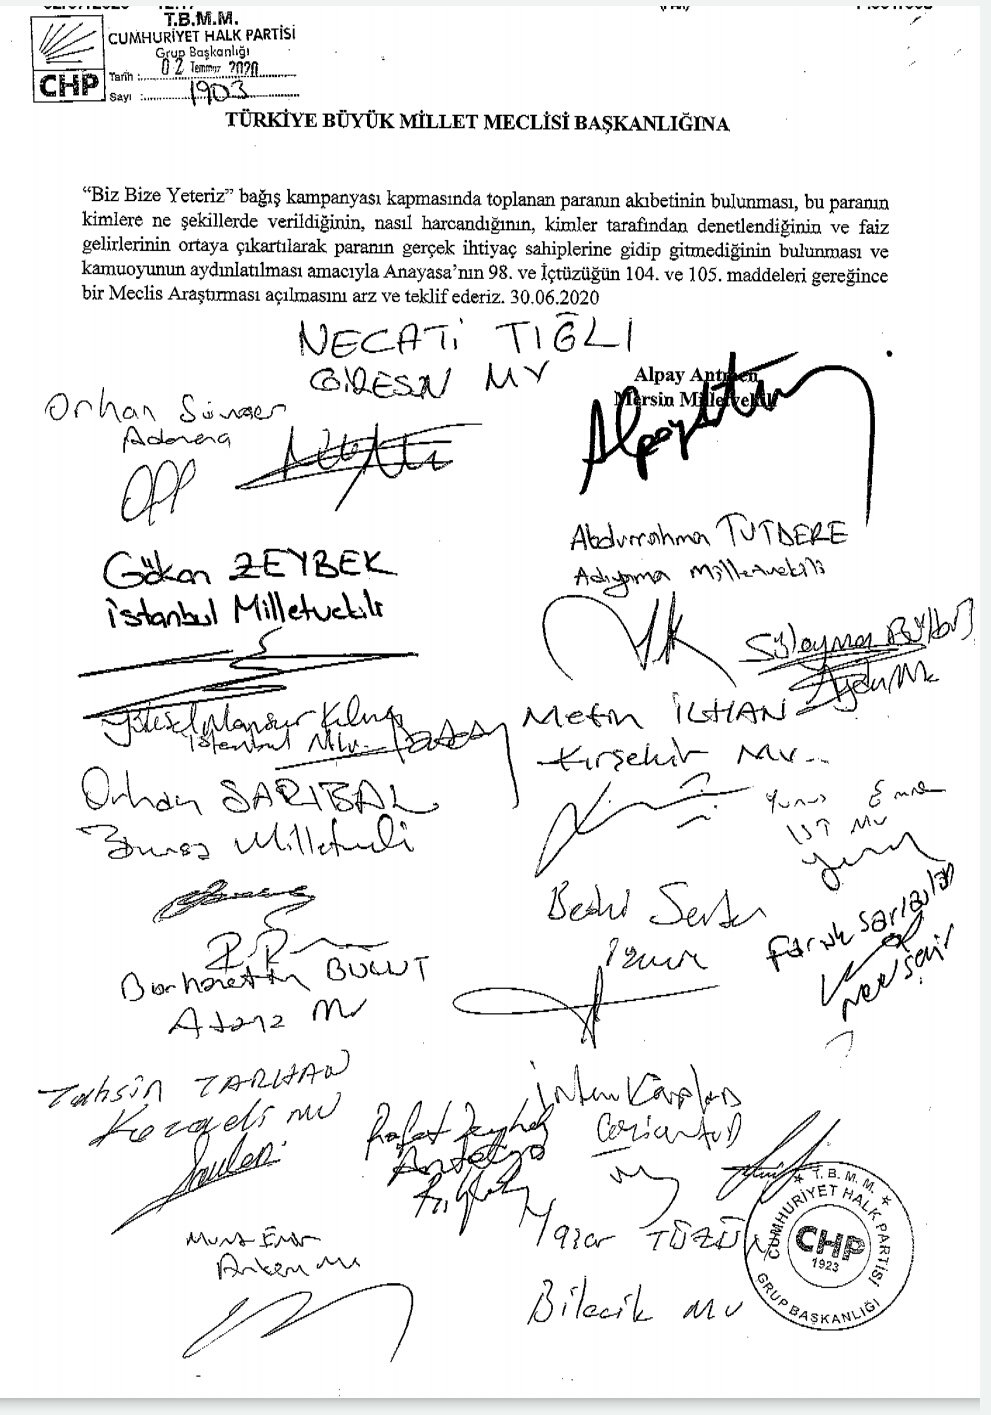 T.B.M.M.
CUMHURİYET HALK PARTİSİ
Grup Başkanlığı
Tarih : 02 Temmuz 2020
Sayı : 1903
CHP
TÜRKİYE BÜYÜK MİLLET MECLİSİ BAŞKANLIĞINA
“Biz Bize Yeteriz” bağış kampanyası kapmasında toplanan paranın akıbetinin bulunması, bu paranın
kimlere ne şekillerde verildiğinin, nasıl harcandığının, kimler tarafından denetlendiğinin ve faiz
gelirlerinin ortaya çıkartılarak paranın gerçek ihtiyaç sahiplerine gidip gitmediğinin bulunması ve
kamuoyunun aydınlatılması amacıyla Anayasa’nın 98. ve İçtüzüğün 104. ve 105. maddeleri gereğince
bir Meclis Araştırması açılmasını arz ve teklif ederiz. 30.06.2020
NECATİ TIĞLI
GİRESN MV
Alpay Antmen
Mersin Milletvekili
Orhan Sümer
Adana
Abdurrahma TUTDERE
Adıyama Milletvekili
Gökan ZEYBEK
İstanbul Milletvekili
Süleyman Bülbül
Aydın Mv
Yüksel Mansur Kılınç
İstanbul Mv.
Metin İLHAN
Kırşehir MV..
Orhan SARIBAL
Bursa Milletvekili
Yunus Emre
İST MV
Bedri Serter
İzmir
Faruk Sarıaslan
Nevşehir
Burhanettin BULUT
Adana Mv
Tahsin TARHAN
Kocaeli MV
İrfan Kaplan
Gaziantep
Rafet Zeybek
Antalya
Murat Emir
Ankara Mv
Yaşar TÜZÜN
Bilecik MV
T.B.M.M.
CUMHURİYET HALK PARTİSİ
CHP
1923
GRUP BAŞKANLIĞI